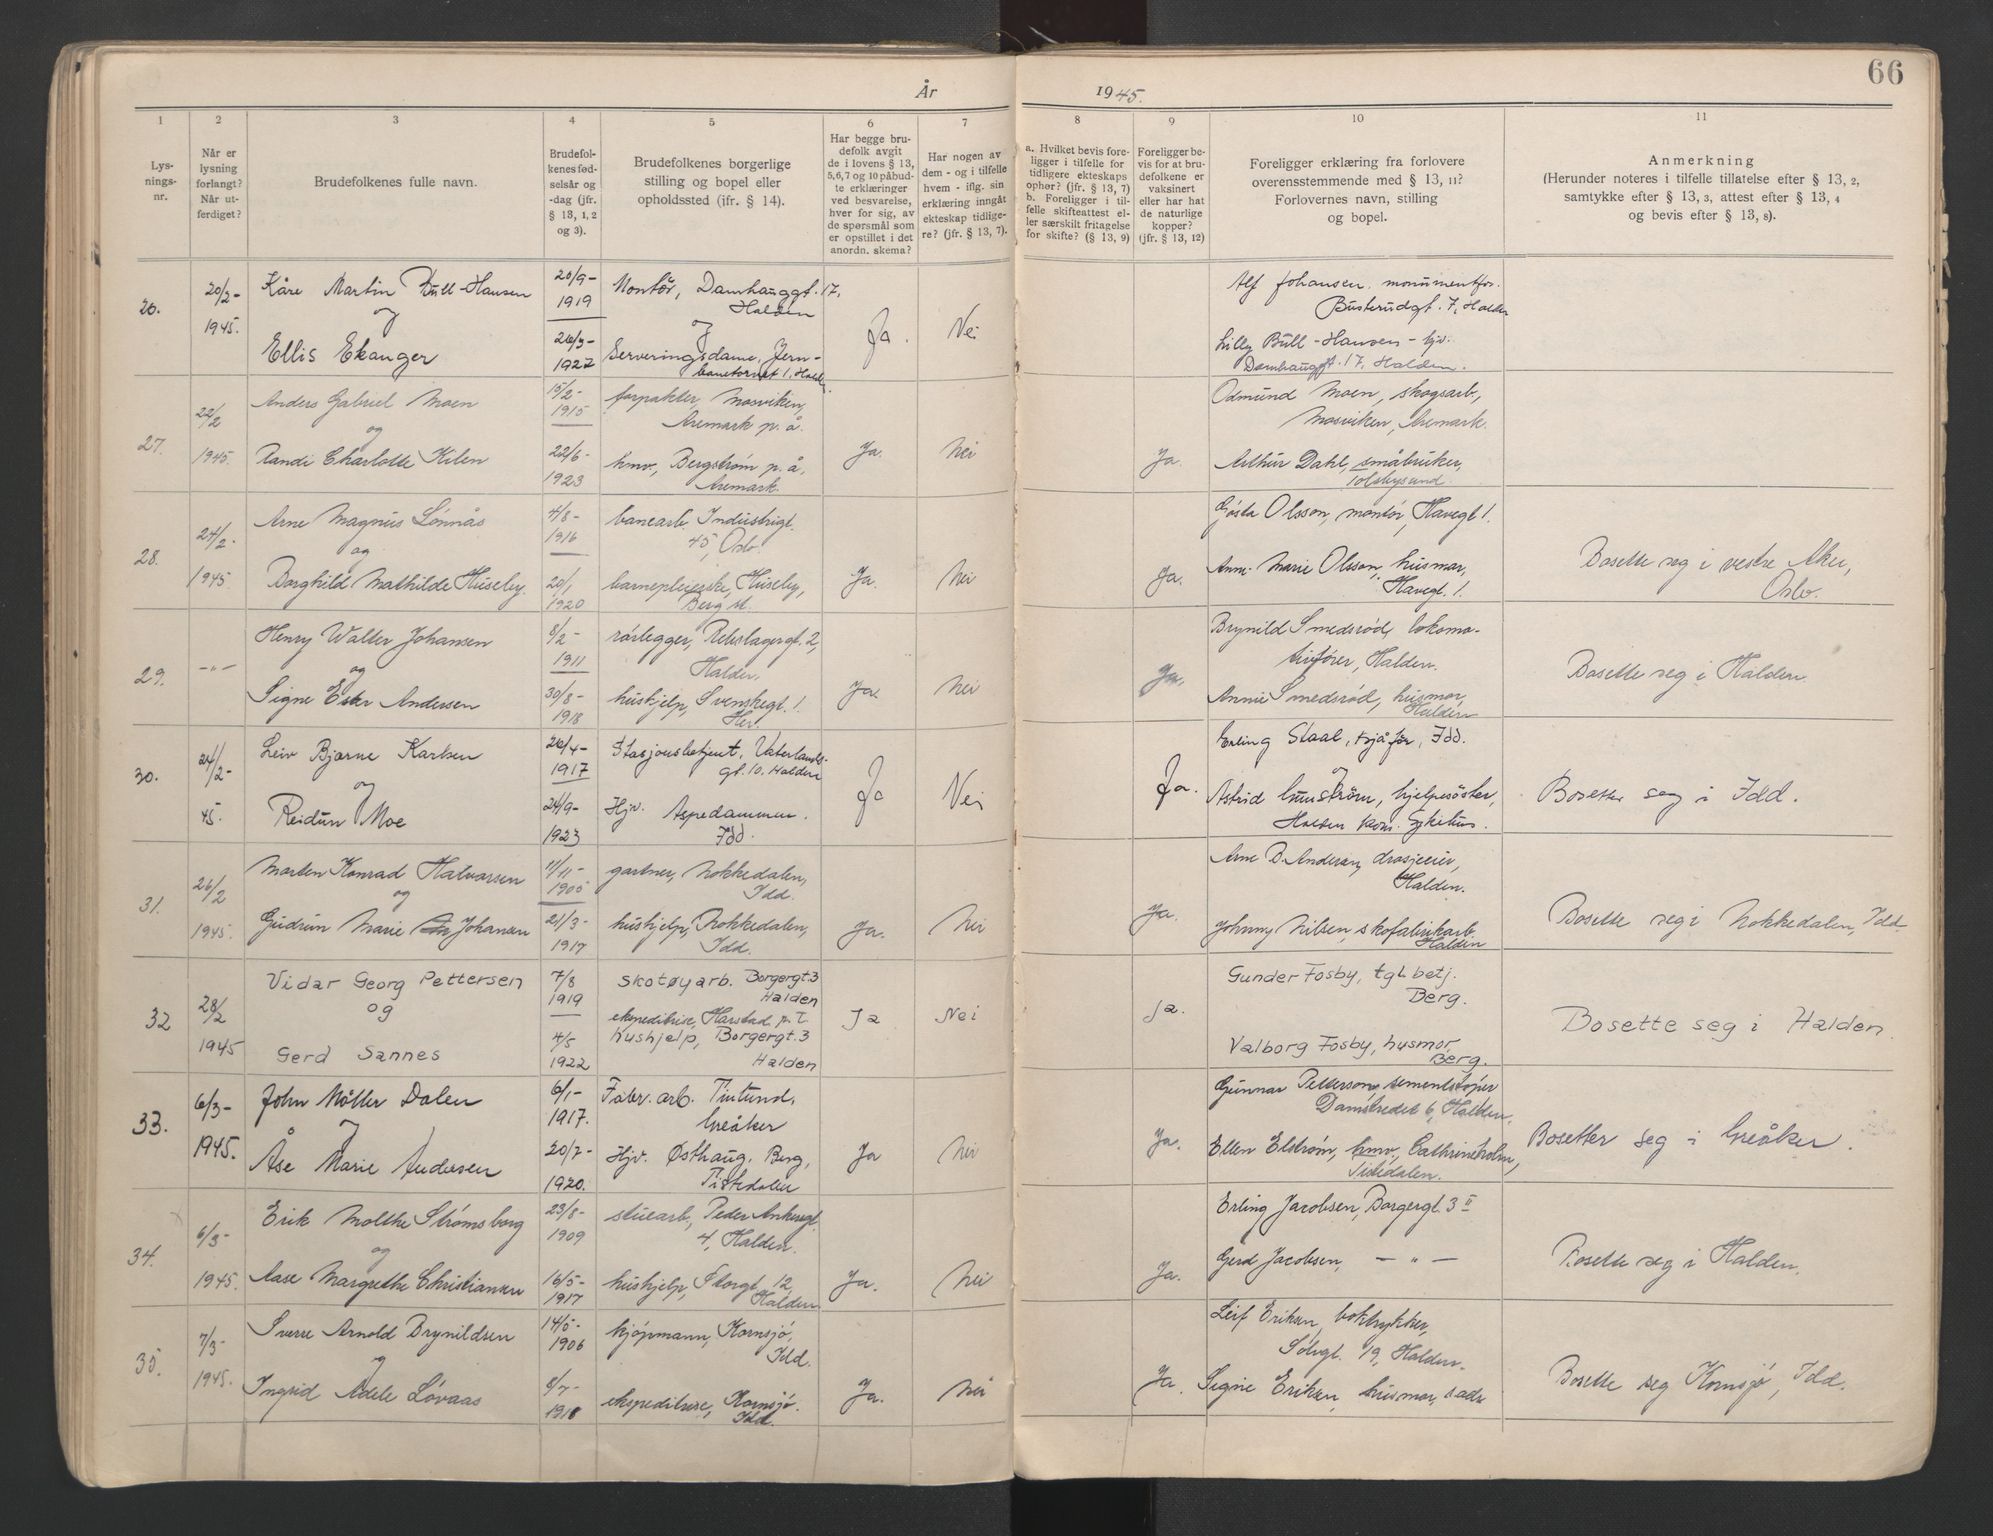 66
År 1945.
1 2 3 4 5 6 7 8 9 10 11
Lys-
nings-
nr.
Når er
lysning
forlangt?
Når ut-
ferdiget?
Brudefolkenes fulle navn.
Brudefol-
kenes fød-
selsår og
-dag (jfr.
§ 13, 1, 2
og 3).
Brudefolkenes borgerlige
stilling og bopel eller
opholdssted (ifr. § 14).
Har begge bru-
defolk avgit
de i lovens § 13,
5,6,7 og 10 påbud-
te erklæringer
ved besvarelse,
hver for sig, av
de spørsmål som
er opstillet i det
anordn. skema?
Har nogen av
dem - og i tilfelle
hvem - iflg. sin
erklæring inngått
ekteskap tidlige-
re? (jfr. § 13, 7).
a. Hvilket bevis fore-
ligger i tilfelle for
tidligere ekteskaps
ophør? (jfr. § 13, 7)
b. Foreligger i til-
felle skifteattest el-
ler særskilt fritagelse
for skifte? (§ 13, 9)
Foreligger be-
vis for at bru-
defolkene er
vaksinert
eller har hat
de naturlige
kopper?
(jfr. § 13, 12)
Foreligger erklæring fra forlovere
overensstemmende med § 13, 11?
Forlovernes navn, stilling
og bopel.
Anmerkning
(Herunder noteres i tilfelle tillatelse efter § 13, 2,
samtykke efter § 13, 3, attest efter § 13, 4
og bevis efter § 13, 8).
26.
20/2-
1945.
Kåre Martin Bull-Hansen
og
Ellis Ekanger
20/9-
1919
26/3-
1927
Montør, Damhauggt. 17,
Halden
og
Serveringsdame, Jern-
banetorvet 1, Halden
Ja.
Nei
Alf Johansen. monumentfor.
Busterudgt. 7, Halden
Lilly Bull-Hansen - hjv.
Damhauggt. 17, Halden.
27.
22/2
1945.
Anders Gabriel Moen
og
Randi Charlotte Kilen
15/2-
1915
22/6-
1923
forpakter Mosviken,
Aremark p. å.
hmv, Bergstrøm p. å,
Aremark.
Ja.
Nei
Ja.
Odmund Moen, skogsarb,
Mosviken, Aremark.
Arthur Dahl, småbruker,
Tolsbysund.
28.
24/2-
1945
Arne Magnus Lønnås
og
Borghild Mathilde Huseby.
4/8-
1916
20/1
1920
banearb. Industrigt.
45, Oslo.
barnepleierske, Huseby,
Berg st.
Ja.
Nei
Ja.
Gösta Olsson, montør, Havegt 1.
Anne Marie Olsson, husmor,
Havegt. 1.
Bosette seg i vestre Aker,
Oslo.
29.
-"-
Henry Walter Johansen
og
Signe Ester Andersen
8/2-
1911
30/8-
1918
rørlegger, Repslagergt. 2,
Halden.
hushjelp, Svenskegt. 1.
Her.
Ja.
Nei
Ja.
Brynild Smedsrød, lokomo-
tivfører, Halden.
Annie Smedsrød, husmor,
Halden
Bosette seg i Halden.
30.
24/2-
45.
Leiv Bjarne Karlsen
og
Reidun Moe
26/4-
1917
24/9-
1923
Stasjonsbetjent. Vaterlands-
gt. 10. Halden
Hjv. Aspedammen.
Idd.
Ja
Nei
Ja.
Erling Staal, sjåfør, Idd.
og
Astrid Lunström, hjelpesöster,
Halden kom. sykehus.
Bosetter seg i Idd.
31.
26/2
1945.
Morten Konrad Halvorsen
og
Gudrun Marie Johansen
11/11-
1905
21/3-
1917
gartner, Nokkedalen,
Idd.
hushjelp, Nokkedalen,
Idd.
Ja.
Nei
Ja.
Arne B. Andersen, drosjeeier,
Halden.
Johnny Nilsen, skofabrikarb,
Halden
Bosette seg i Nokkedalen, Idd.
32
28/2
1945
Vidar Georg Pettersen
og
Gerd Sannes
7/8
1919
4/5
1922
Skotøyarb. Borgergt. 3
Halden
ekspeditrise, Harstad p. t.
hushjelp, Borgergt. 3
Halden
Ja
Nei
Ja.
Gunder Fosby, tgl. betj.
Berg.
Valborg Fosby, husmor,
Berg.
Bosette seg i Halden.
33.
6/3-
1945.
John Møller Dalen
og
Åse Marie Andersen
6/1-
1917.
20/7-
1920.
Fabr. arb. Tintund,
Greåker
Hjv. Østhaug, Berg,
Tistedalen
Ja
Nei
Ja.
Gunnar Petterson, sementstøper
Damstredet 6, Halden.
Ellen Elstrøm, hmv., Cathrineholm,
Tistedalen.
Bosetter seg i Greåker.
34.
6/3-
1945
Erik Moltke Strømsborg
og
Aase Margrethe Christiansen
23/8-
1909
16/5-
1917
stuearb, Peder Ankersgt.
4, Halden.
hushjelp, Storgt. 12,
Halden
Ja.
Nei
Ja.
Erling Jacobsen, Borgergt. 3 II
Gerd Jacobsen, - " -
Bosette seg i Halden.
35.
7/3-
1945.
Sverre Arnold Brynildsen
og
Ingrid Adele Løvaas
14/5-
1906
8/7-
1918
kjøpmann, Kornsjø,
Idd.
ekspeditrise, Kornsjø.
Idd.
Ja.
Nei
Ja.
Leif Eriksen, boktrykker,
Sølvgt. 19, Halden.
Signe Eriksen, husmor, sads
Bosette seg Kornsjø, Idd.